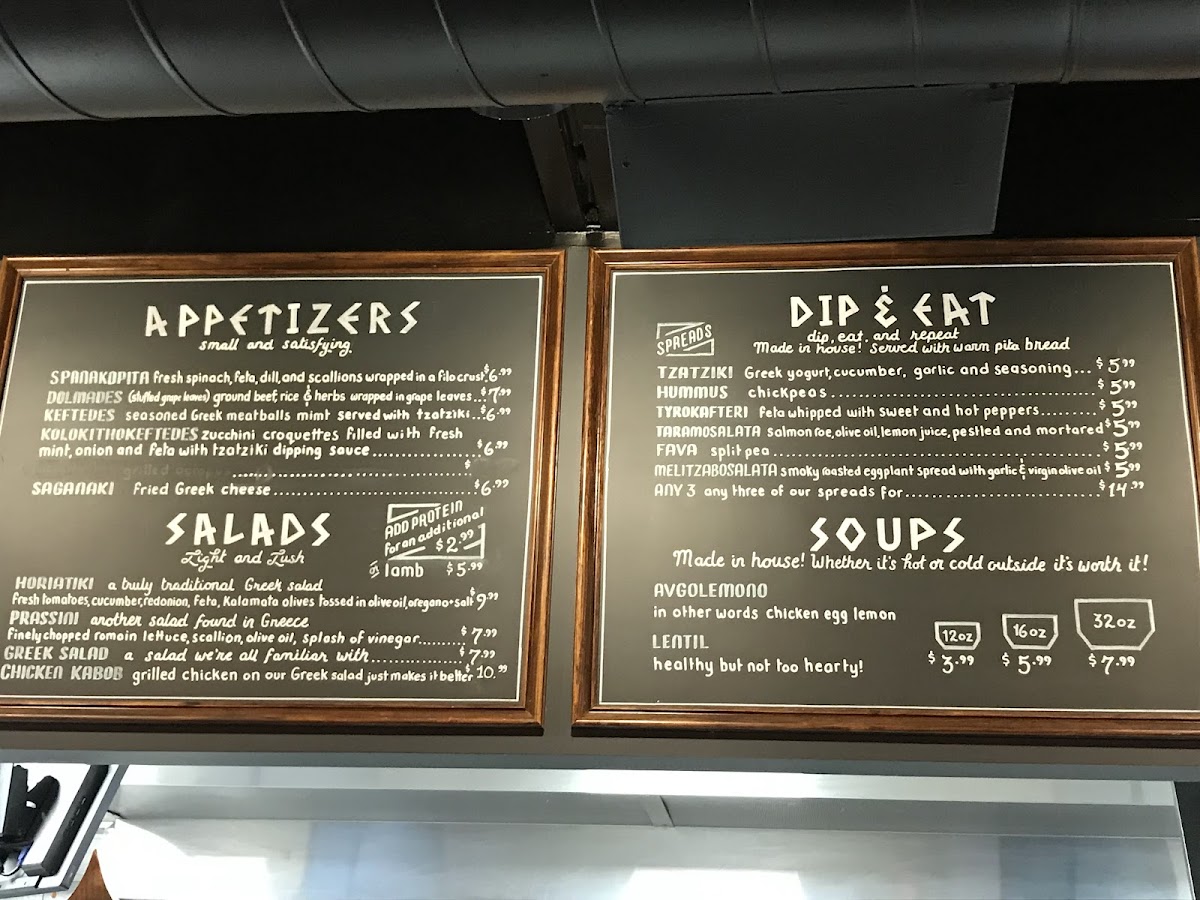 APPETIZERS
small and satisfying
SPANAKOPITA fresh spinach, feta, dill, and scallions wrapped in a filo crust $6.99
DOLMADES (stuffed grape leaves) ground beef, rice & herbs wrapped in grape leaves..$7.99
KEFTEDES seasoned Greek meatballs mint served with tzatziki..$6.99
KOLOKITHOKEFTEDES zucchini croquettes filled with fresh
mint, onion and feta with tzatziki dipping sauce...............$6.99
$
SAGANAKI Fried Greek cheese..............................$6.99
SALADS
Light and Lush
ADD PROTEIN
for an additional
$2.99
lamb $5.99
HORIATIKI a truly traditional Greek salad
fresh tomatoes, cucumber, red onion, feta, Kalamata olives tossed in olive oil, oregano + salt $9.99
PRASSINI another salad found in Greece
finely chopped romain lettuce, scallion, olive oil, splash of vinegar........$7.99
GREEK SALAD a salad we're all familiar with...............$7.99
CHICKEN KABOB grilled chicken on our Greek salad just makes it better $10.99
DIP & EAT
dip, eat, and repeat
SPREADS
Made in house! Served with warm pita bread
TZATZIKI Greek yogurt, cucumber, garlic and seasoning...$5.99
HUMMUS chickpeas........................................$5.99
TYROKAFTERI feta whipped with sweet and hot peppers.........$5.99
TARAMOSALATA salmon roe, olive oil, lemon juice, pestled and mortared $5.99
FAVA split pea..................................................$5.99
MELITZABOSALATA smoky roasted eggplant spread with garlic & virgin olive oil $5.99
ANY 3 any three of our spreads for..............................$14.99
SOUPS
Made in house! Whether it's hot or cold outside it's worth it!
AVGOLEMONO
in other words chicken egg lemon
LENTIL
healthy but not too hearty!
12oz 16oz 32oz
$3.99 $5.99 $7.99